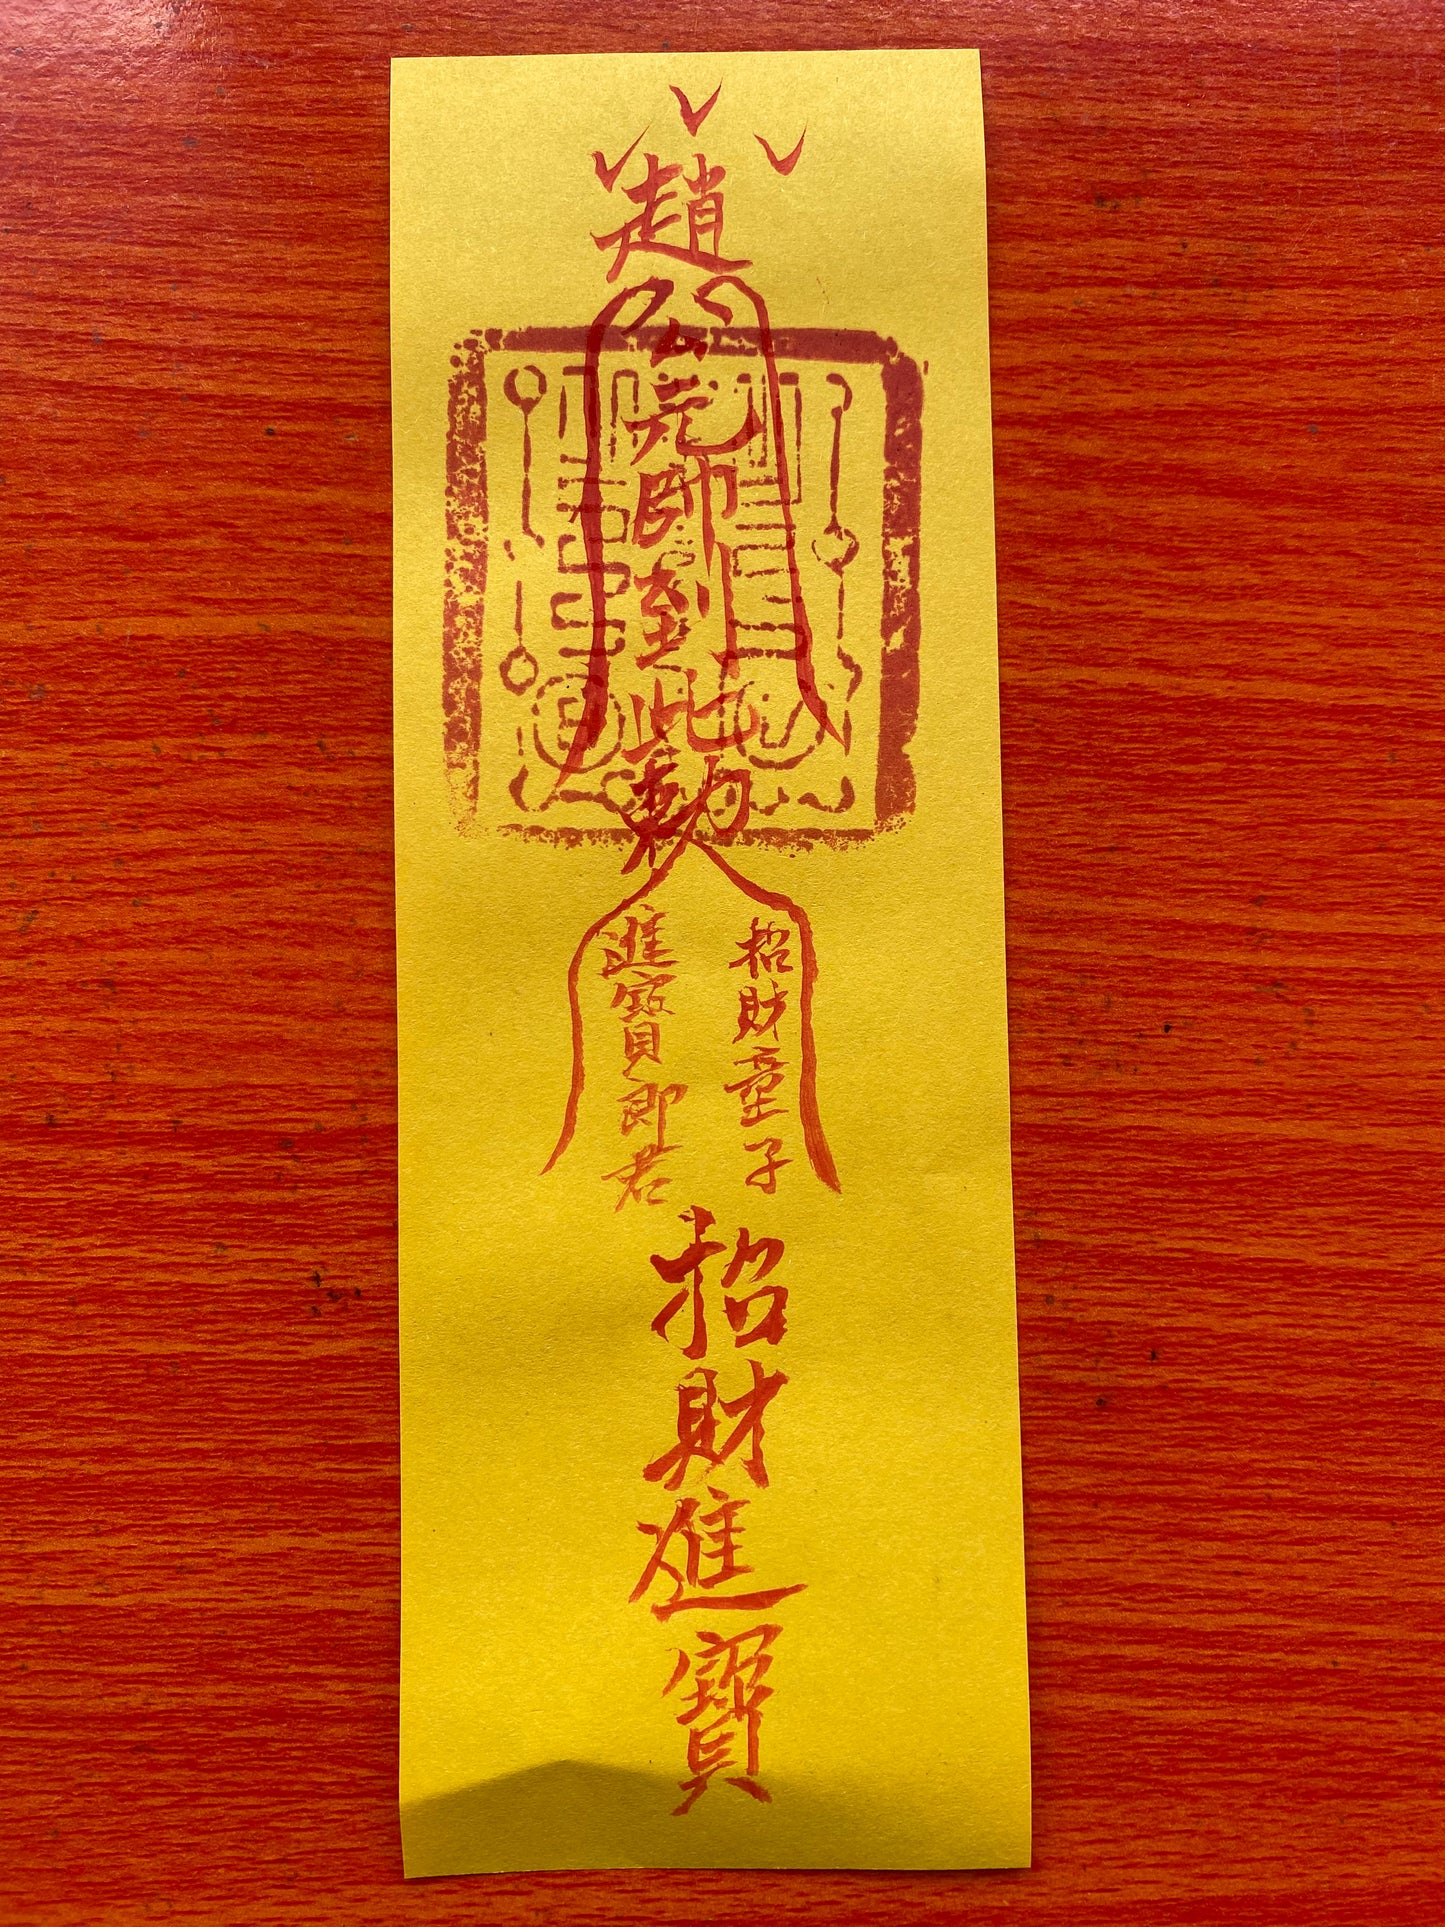 趙公元帥到此敕
招財童子
進寶郎君
招財進寶